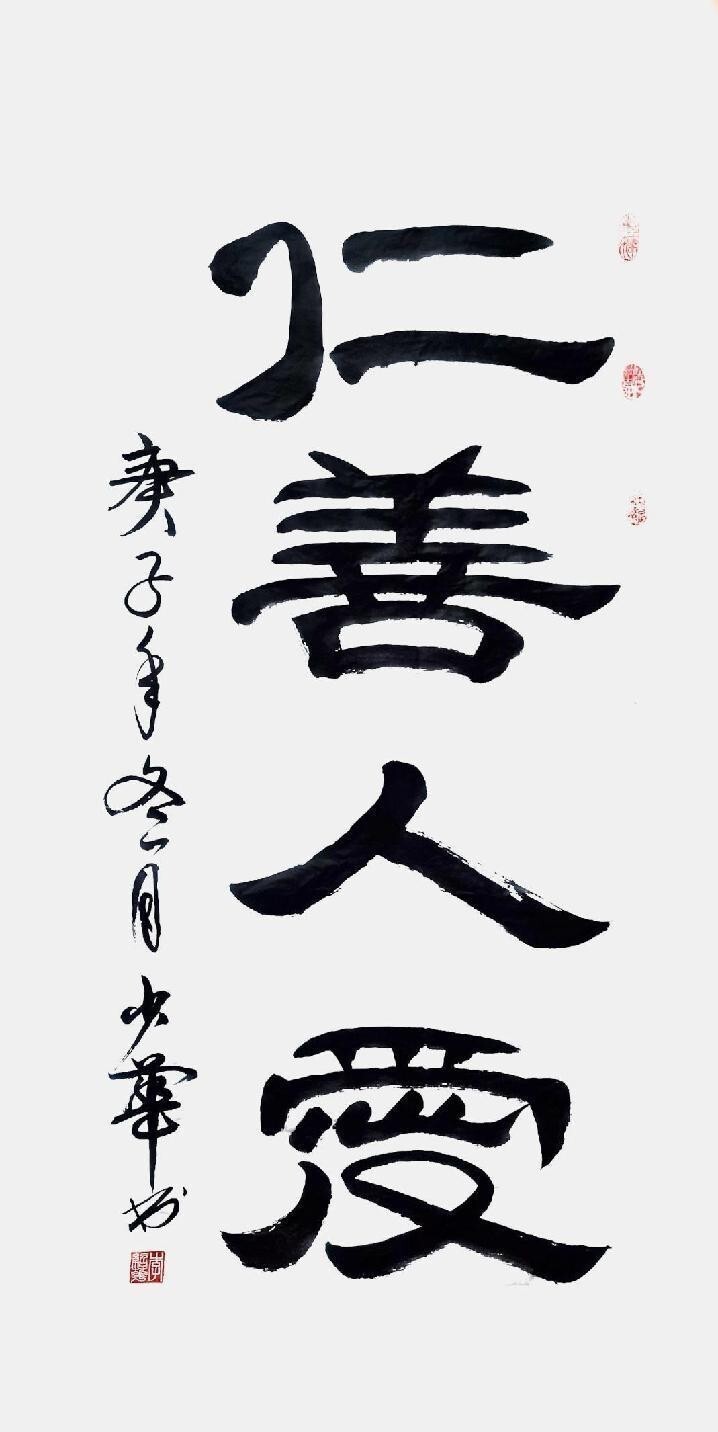 仁善人愛
庚子年冬月少華書